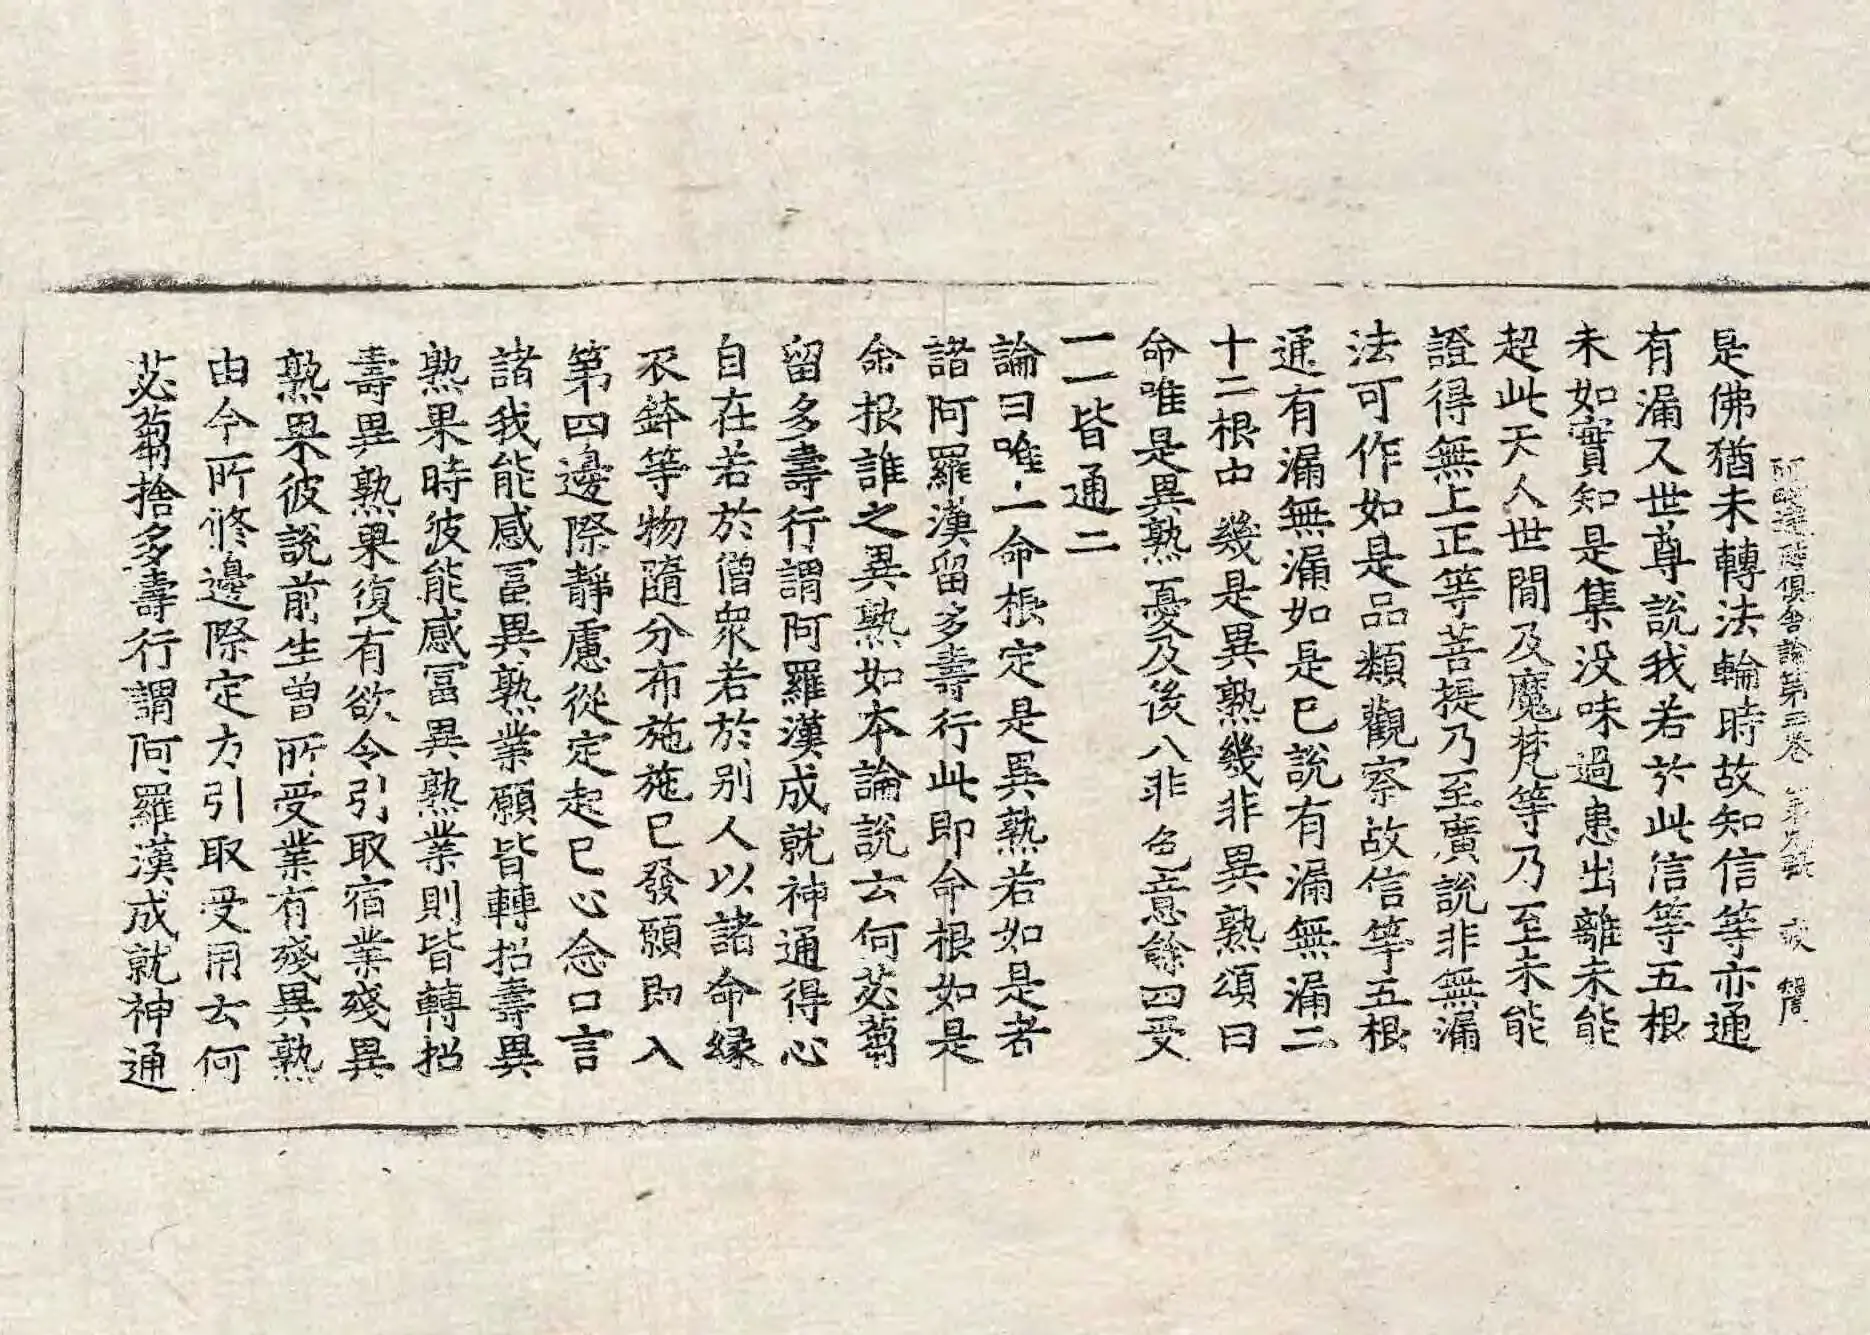 阿毗達磨俱舍論第三卷 第九張 疲 
是佛猶未轉法輪時故知信等亦通
有漏又世尊說我若於此信等五根
未如實知是集没味過患出離未能
超此天人世間及魔梵等乃至未能
證得無上正等菩提乃至廣說非無漏
法可作如是品類觀察故信等五根
通有漏無漏如是已說有漏無漏二
十二根中幾是異熟幾非異熟頌曰
命唯是異熟憂及後八非色意餘四受
一一皆通二
論曰唯一命根定是異熟若如是者
諸阿羅漢留多壽行此即命根如是
命根誰之異熟如本論說云何苾蒭
留多壽行謂阿羅漢成就神通得心
自在若於僧眾若於別人以諸命緣
衣鉢等物隨分布施施已發願即入
第四邊際靜慮從定起已心念口言
諸我能感冨異熟業願皆轉招壽異
熟果時彼能感冨異熟業則皆轉招
壽異熟果復有欲令引取宿業殘異
熟果彼說前生曾所受業有殘異熟
由今所修邊際定力引取受用云何
苾蒭捨多壽行謂阿羅漢成就神通